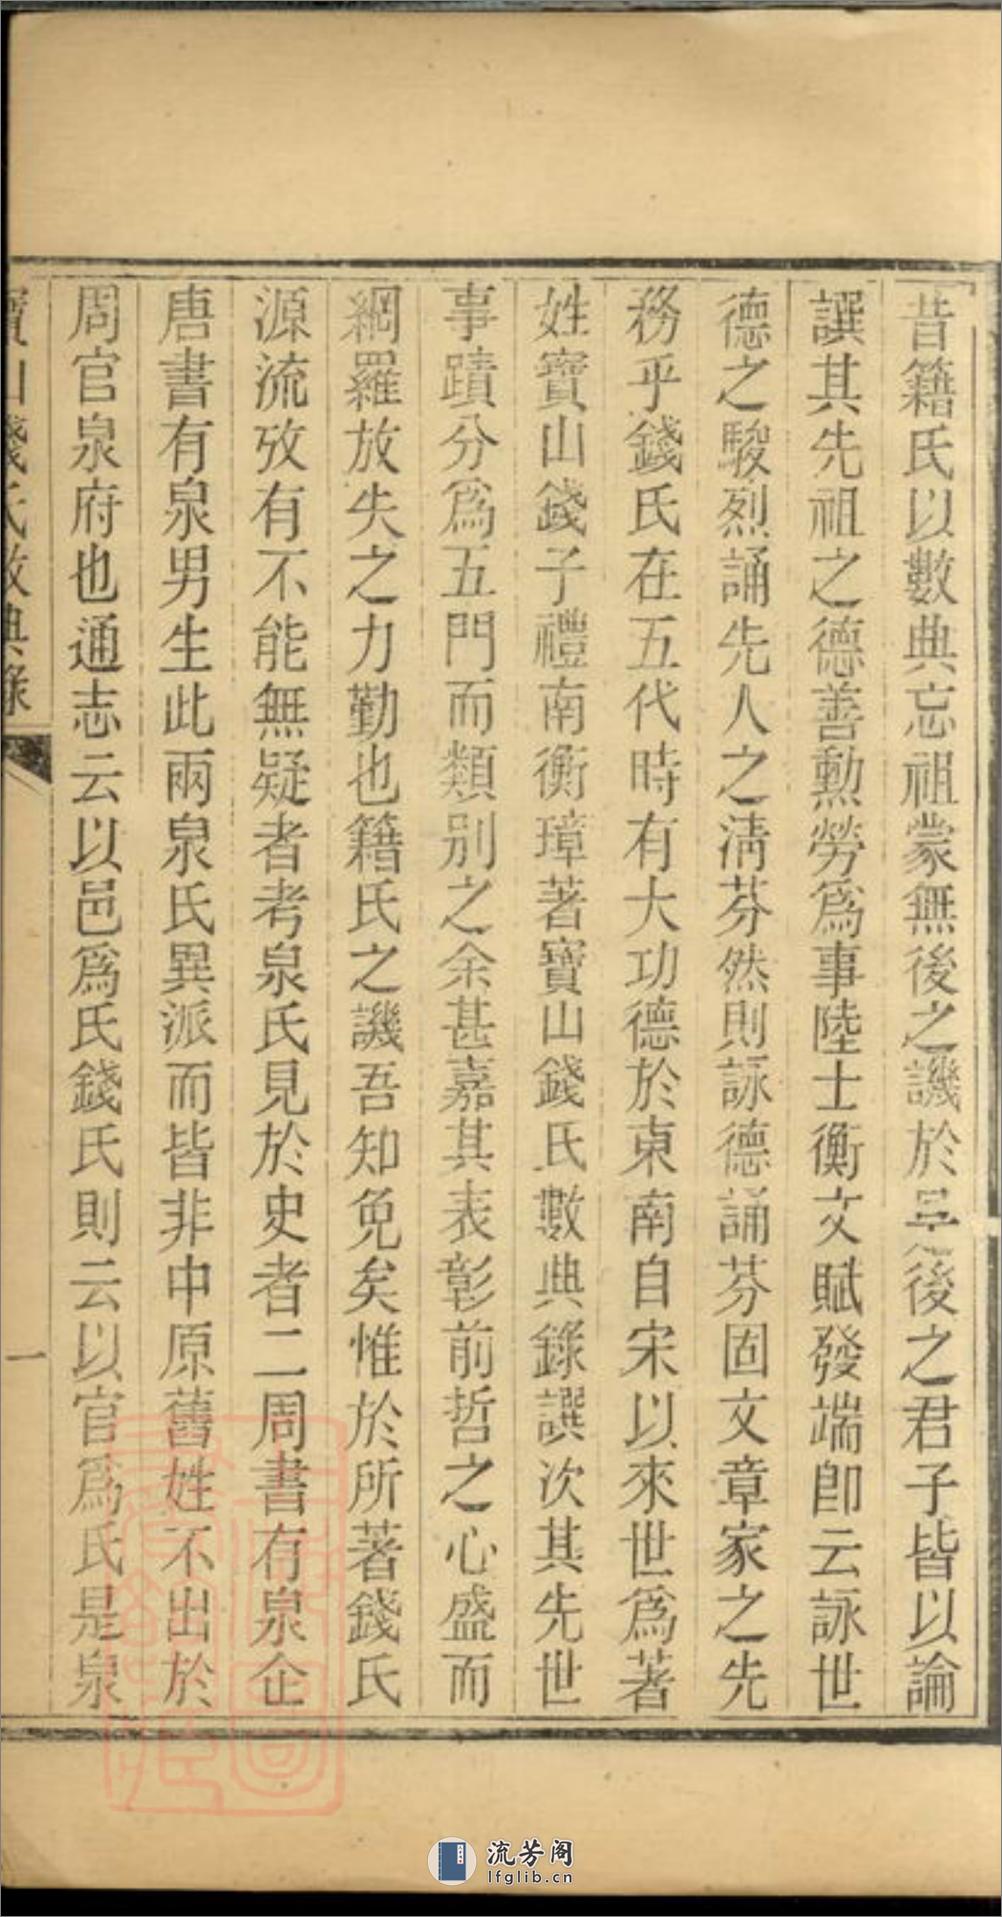 昔籍氏以數典忘祖蒙無後之譏於是後之君子皆以論
譔其先祖之德善勲勞爲事陸士衡文賦發端卽云詠世
德之駿烈誦先人之淸芬然則詠德誦芬固文章家之先
務乎錢氏在五代時有大功德於東南自宋以來世爲著
姓寶山錢子禮南衡璋著寶山錢氏數典錄譔次其先世
事蹟分爲五門而類別之余甚嘉其表彰前哲之心盛而
網羅放失之力勤也籍氏之譏吾知免矣惟於所著錢氏
源流攷有不能無疑者考泉氏見於史者二周書有泉企
唐書有泉男生此兩泉氏異派而皆非中原舊姓不出於
周官泉府也通志云以邑爲氏錢氏則云以官爲氏是泉
寶山錢氏數典錄
一
流芳阁
lfglib.cn